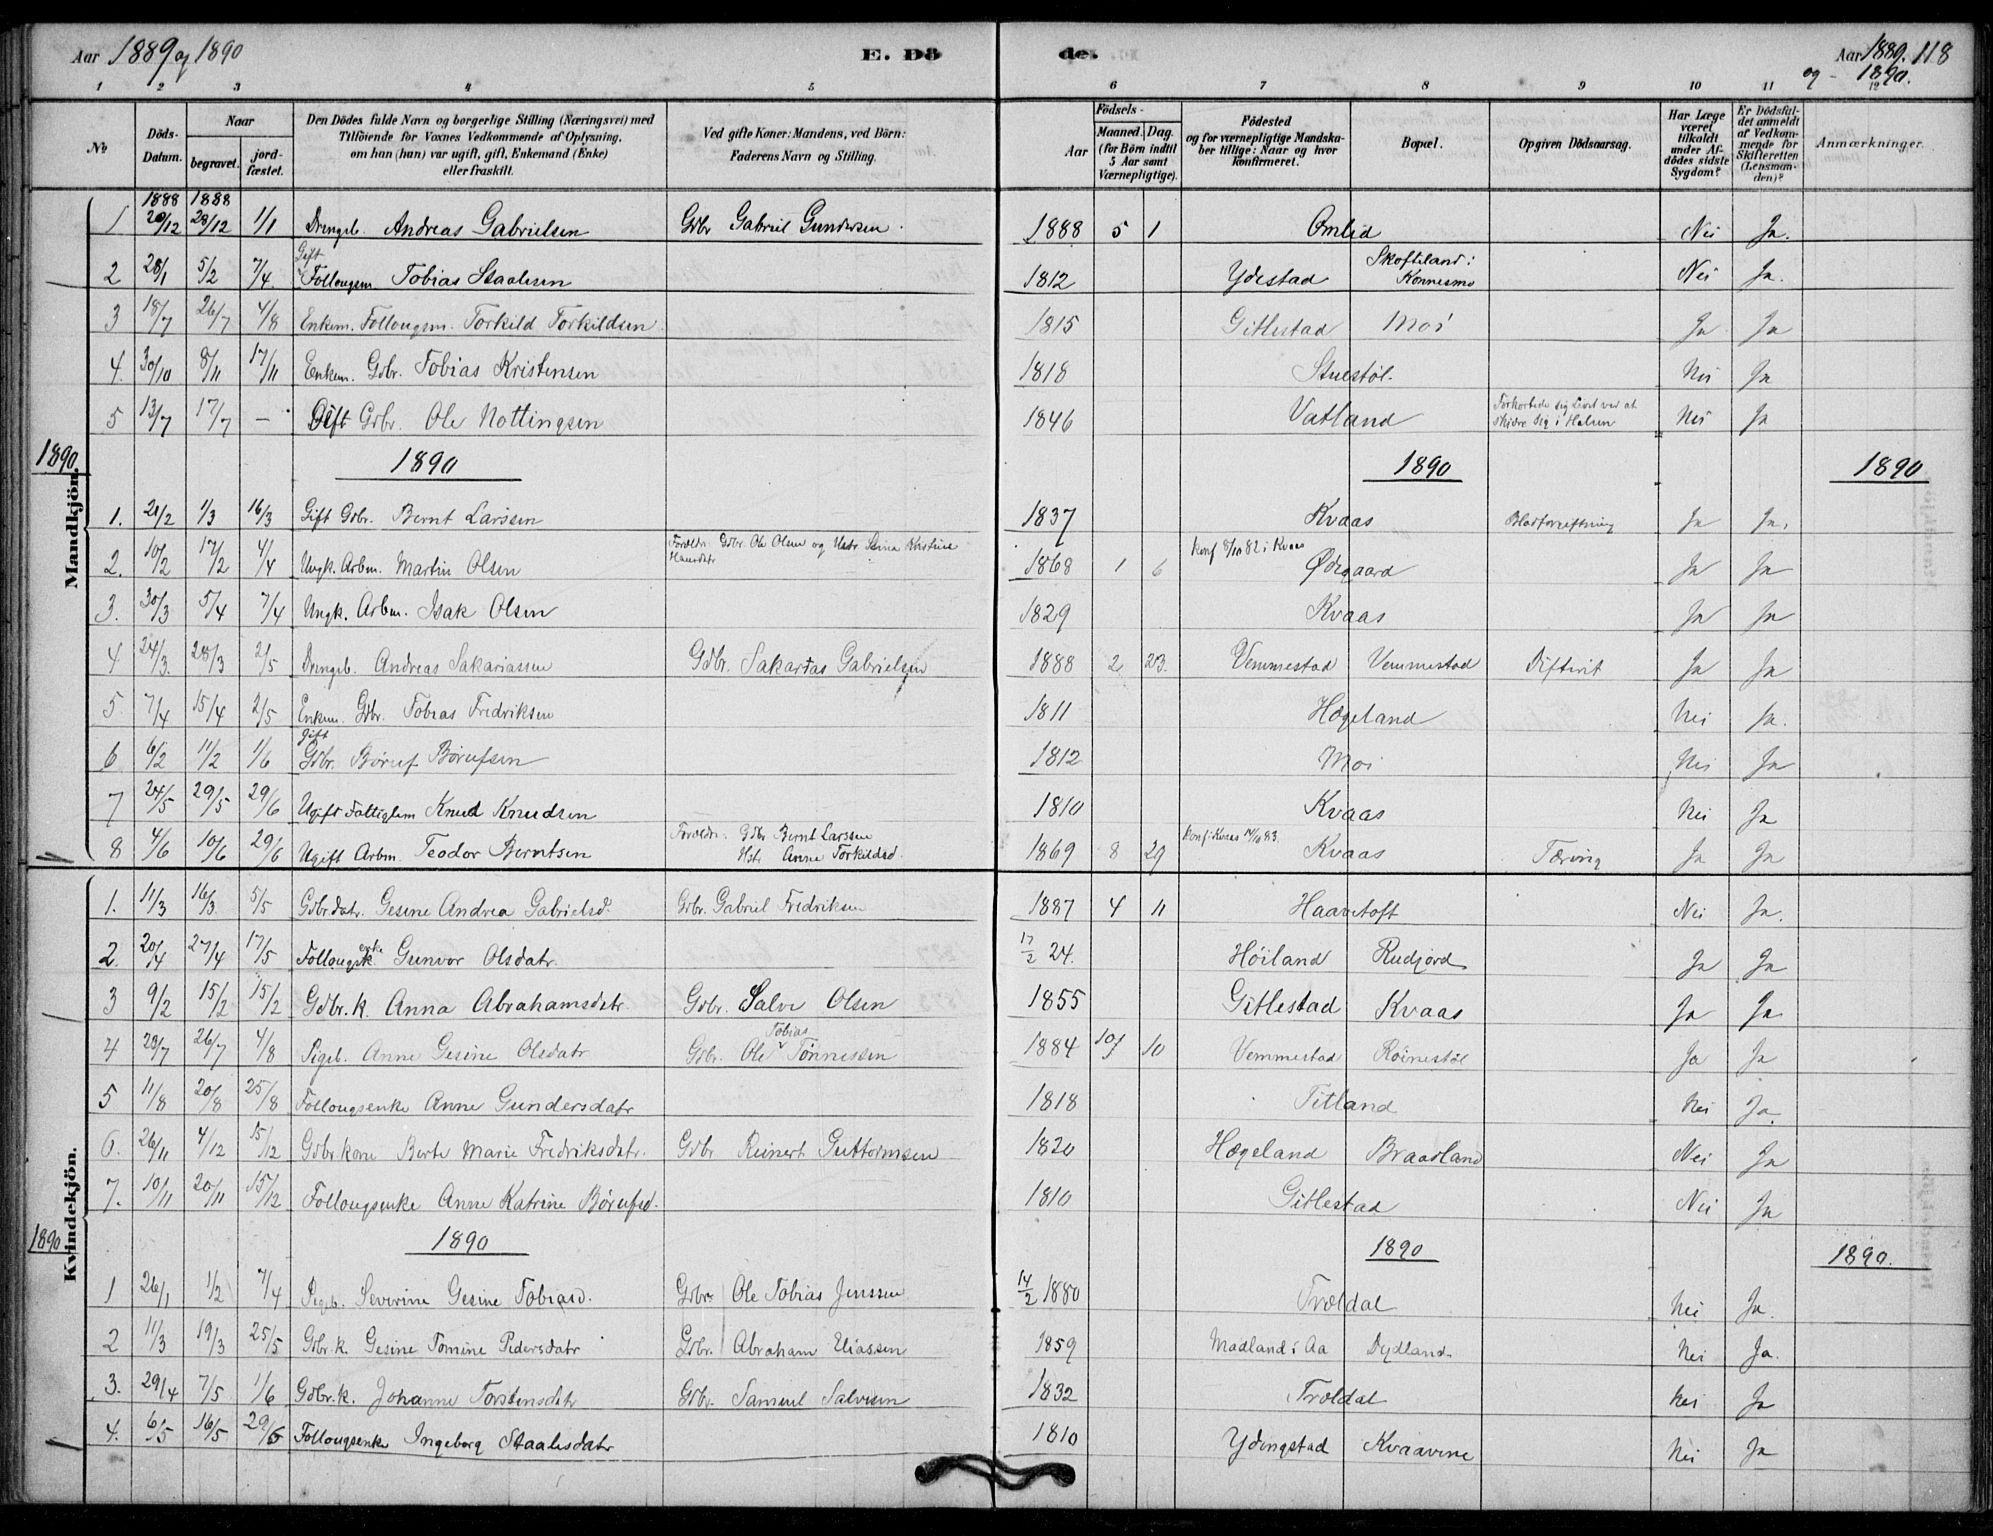 Aar 1889 og 1890 E. Dö de. Aar 1889. 118
og 1890.
1 2 3 4 5 6 7 8 9 10 11 12
No Döds-Datum. Naar begravet. jordfæstet. Den Dödes fulde Navn og borgerlige Stilling (Næringsvei) med Tilföiende for Voxnes Vedkommende af Oplysning, om han (hun) var ugift, gift, Enkemand (Enke) eller fraskilt. Ved gifte Koner: Mandens, ved Börn: Faderens Navn og Stilling. Aar Födsels- Maaned. Dag. (for Börn indtil 5 Aar samt Værnepligtige). Födested og for værnepligtige Mandskaber tillige: Naar og hvor konfirmeret. Bopæl. Opgiven Dödsaarsag. Har Læge været tilkaldt under Afdödes sidste Sygdom? Er Dödsfaldet anmeldt af Vedkommende for Skifteretten (Lensmanden)? Anmærkninger.
Mandkjön.
1888 1888
1 20/12 28/12 1/1 Drengeb. Andreas Gabrielsen Gdbr Gabriel Gundersen. 1888 5 1 Omlid Nei Ja.
2 28/1 5/2 7/4 Gift Follougsm Tobias Staalesen 1812 Ydestad Skofteland i Konnesmo Nei Ja.
3 18/7 26/7 4/8 Enkem. Follougsm. Torkild Torkildsen. 1815 Gitlestad Moi Ja Ja
4. 30/10 8/11 17/11 Enkem. Gdbr. Tobias Kristensen 1818 Stuestøl. Nei Ja
5 13/7 17/7 — Gift Gdbr. Ole Nottingsen 1846 Vatland Forkortede sig Livet ved at skjære sig i Halsen Nei Ja
1890. 1890 1890 1890
1. 21/2 1/3 16/3 Gift Gdbr. Bernt Larssen 1837 Kvaas Blodforgiftning Ja Ja.
2. 10/2 17/2 4/4 Ungk. Arbm. Martin Olsen Foreldr. Gdbr. Ole Olsen og Hstr Stina Kristine 1868 1 6 Konf 8/10 82 i Kvaas Ødegaard Ja Ja
3. 30/3 5/4 7/4 Ungk. Arbm. Isak Olsen 1829 Kvaas Ja Ja
4 24/3. 28/3 2/5 Drengeb. Andreas Sakariassen Gdbr. Sakarias Gabrielsen 1888 2 23. Vemmestad Vemmestad Difterit Ja Ja
5. 7/4 15/4 2/5 Enkem. Gdbr. Tobias Fredriksen 1811 Hægeland Nei Ja.
6 6/2 11/2 1/6 gift Gdbr. Børuf Børufsen 1812 Moi Nei Ja
7 24/5 29/5 29/6 Ugift Fattiglem Knud Knudsen 1810 Kvaas Nei Ja
8 4/6 10/6 29/6 Ugift Arbm. Teodor Berntsen Foreldr: Gdbr Bernt Larssen Hstr Anne Torkildsd. 1869 8 29 Konf i Kvaas 14/10 83 Kvaas Tæring Ja Ja
Kvindekjön.
1. 11/3 16/3. 5/5 Gdbr.datr. Gesine Andrea Gabrielsd. Gdbr. Gabriel Fredriksen 1887 4 11 Haavetoft Nei Ja.
2. 20/4 27/4 17/5 Follougsenke Gunvor Olsdatr. 17/2 24. Høiland Rudjord Ja Ja
3 9/2 15/2 15/2 Gdbr.k. Anna Abrahamsdatr. Gdbr. Salve Olsen 1855 Gitlestad Kvaas Ja Ja
4 20/7 26/7 4/8 Pigeb. Anne Gesine Olsdatr Gdbr. Ole Tobias Tønnessen 1884 10 10 Vemmestad Roinestøl Ja Ja
5 11/8 20/8 25/8 Follougsenke Anne Gundersdatr 1818 Titland Nei Ja.
6. 26/11 4/12 15/12 Gdbr.kone Berte Marie Fredriksdatr. Gdbr Reinert Guttormsen 1820 Hægeland Braadland Nei Ja
7. 10/11 20/11 15/12 Follougsenke Anne Katrine Børufsd. 1810 Gitlestad Nei Ja
1890 1890 1890 1890.
1 26/1 1/2 7/4 Pigeb. Severine Gesine Tobiasd. Gdbr. Ole Tobias Jenssen 14/2 1880 Troldal Nei Ja.
2 11/3 19/3 25/5 Gdbr.k. Gesine Tomine Pedersdatr Gdbr. Abraham Eliassen 1859 Madland i Aa Dydland. Nei Ja.
3. 29/4 7/5 1/6 Gdbr.k. Johanne Torstensdatr Gdbr. Samuel Salvesen 1832 Troldal Nei Ja
4. 6/5 16/5 29/6 Follougsenke Ingeborg Staalesdatr 1810 Ydingstad Kvaavene Nei Ja